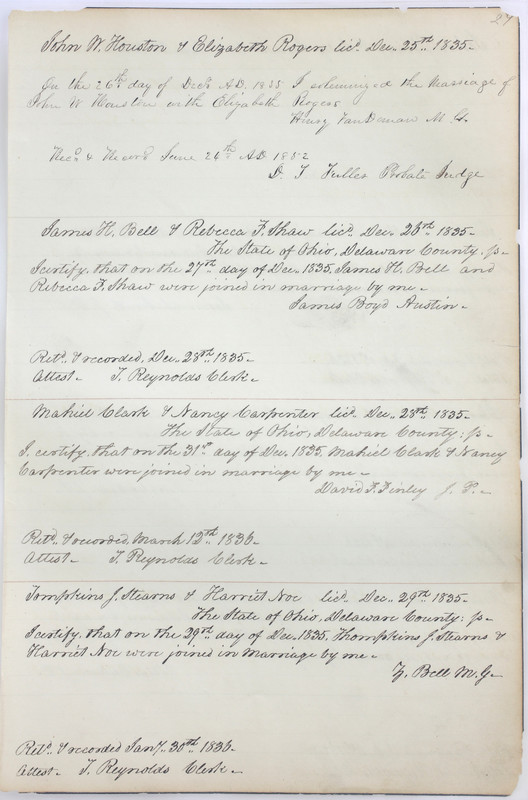 27
John W. Houston & Elizabeth Rogers lic'd. Dec.. 25th 1835-
On the 26th day of Decr. A.D. 1835 I solemnized the Marriage of
John W Houston with Elizabeth Rogers
Henry Vandeman M. G.
Rec'd & Record June 24th A.D. 1852
D. T. Fuller Probate Judge
James H. Bell & Rebecca F. Shaw lic'd. Dec. 26th 1835-
The State of Ohio, Delaware County: ss-
I certify, that on the 27th day of Dec. 1835, James H. Bell and
Rebecca F. Shaw were joined in marriage by me-
James Boyd Austin-
Ret'd. & recorded, Dec.. 28th 1835-
Attest- T. Reynolds Clerk-
Mahiel Clark & Nancy Carpenter lic'd. Dec.. 28th 1835-
The State of Ohio, Delaware County: ss-
I, certify, that on the 31st day of Dec. 1835, Mahiel Clark & Nancy
Carpenter were joined in marriage by me-
David F. Finley J. P.-
Ret'd. & recorded, March 12th 1836-
Attest- T. Reynolds Clerk-
Tompkins J. Stearns & Harriet Noe lic'd. Dec.. 29th 1835-
The State of Ohio, Delaware County: ss-
I certify, that on the 29th day of Dec. 1835, Thompkins J. Stearns &
Harriet Noe were joined in Marriage by me-
Z. Bell M.G-
Ret'd.. & recorded Jany. 30th 1836-
Attest- T. Reynolds Clerk-